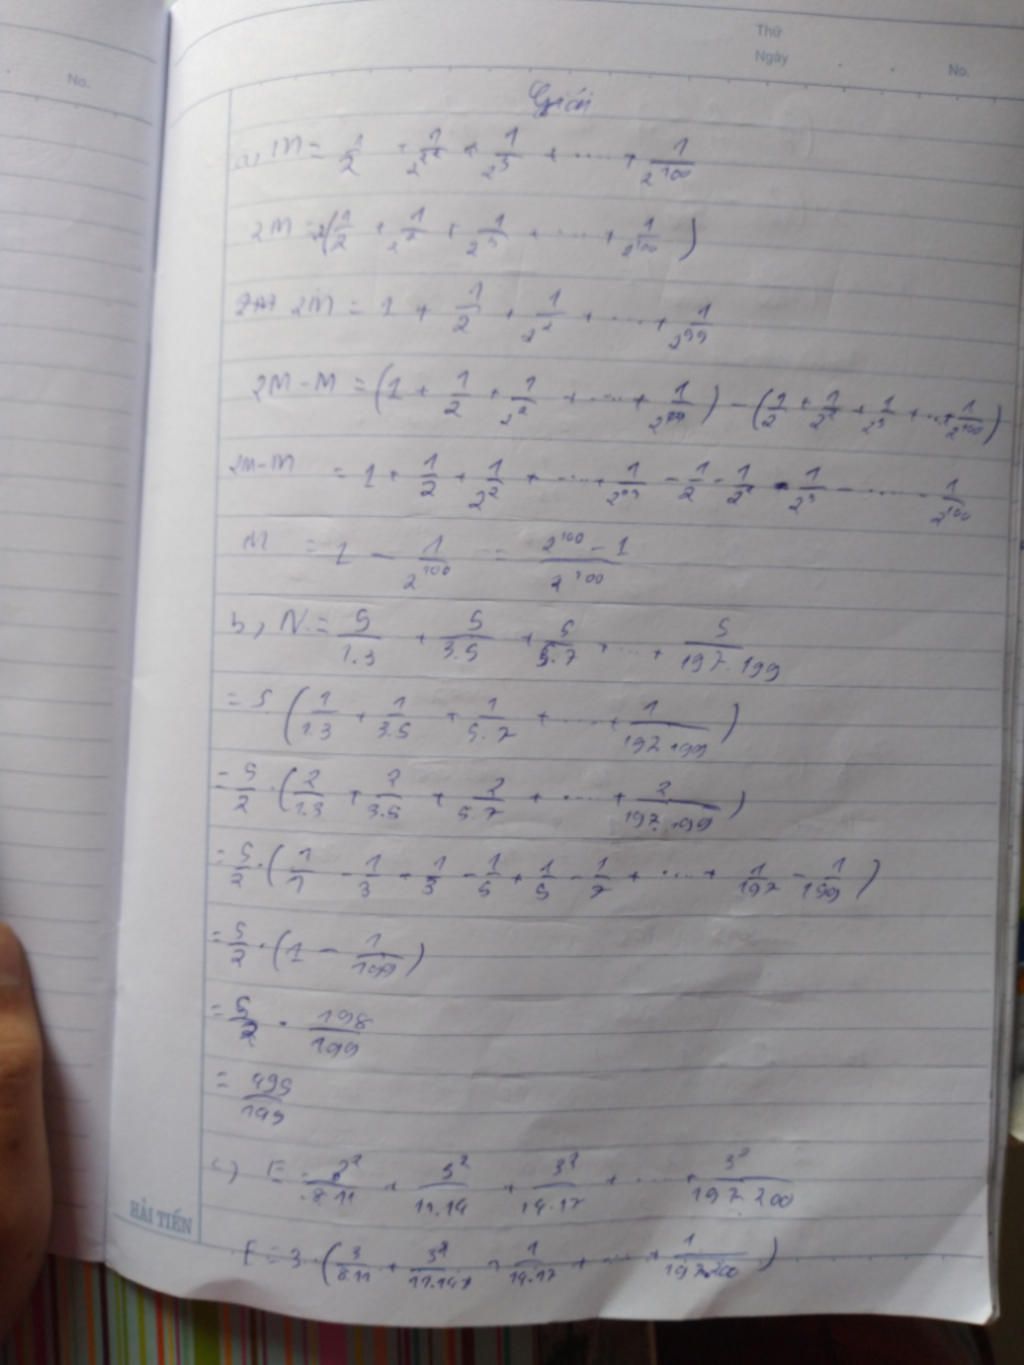 No.
Thứ
Ngày
No.
Giải
a, M = 1/2 + 1/2^2 + 1/2^3 + .... + 1/2^100
2M = 2(1/2 + 1/2^2 + 1/2^3 + .... + 1/2^100)
2M = 1 + 1/2 + 1/2^2 + .... + 1/2^99
2M - M = (1 + 1/2 + 1/2^2 + .... + 1/2^99) - (1/2 + 1/2^2 + 1/2^3 + ... + 1/2^100)
2M - M = 1 + 1/2 + 1/2^2 + .... + 1/2^99 - 1/2 - 1/2^2 - 1/2^3 - .... - 1/2^100
M = 1 - 1/2^100 = 2^100 - 1/2^100
b, N = 5/1.3 + 5/3.5 + 5/5.7 + ... + 5/197.199
= 5.(1/1.3 + 1/3.5 + 1/5.7 + .... + 1/197.199)
= 5/2 . (2/1.3 + 2/3.5 + 2/5.7 + .... + 2/197.199)
= 5/2 . (1/1 - 1/3 + 1/3 - 1/5 + 1/5 - 1/7 + .... + 1/197 - 1/199)
= 5/2 . (1 - 1/199)
= 5/2 . 198/199
= 495/199
c) E = 3^2/8.11 + 3^2/11.14 + 3^2/14.17 + ... + 3^2/197.200
E = 3.(3/8.11 + + 1/14.17 + ... + 1/197.200)
HẢI TIẾN